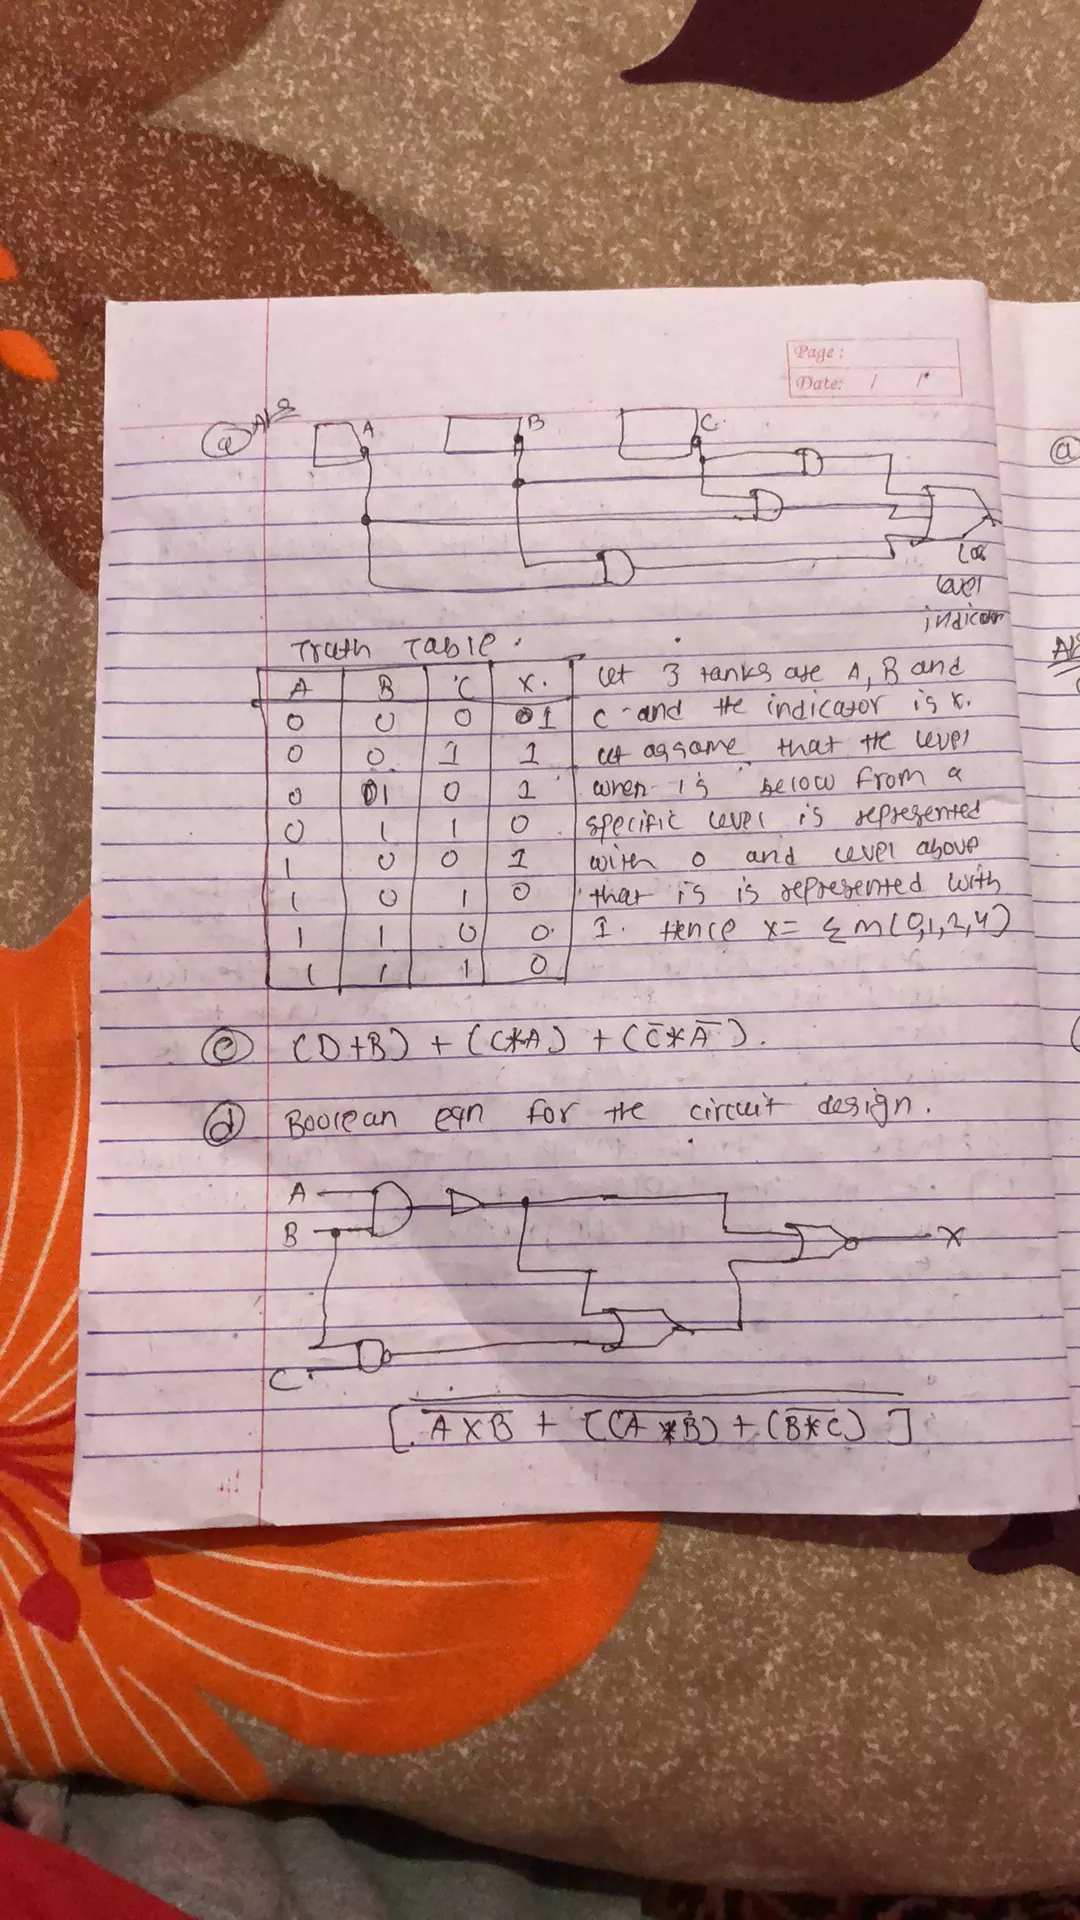 Page:
Date: / /
(a) Ans
A B C
Low
level
indicator
Truth Table.
A B C X.
0 0 0 01
0 0. 1 1
0 01 0 1
0 1 1 0
1 0 0 1
1 0 1 0
1 1 0 0.
1 1 1 0
Let 3 tanks are A, B and
C and the indicator is x.
Let assame that the level
when is below from a
specific level is represented
with 0 and level above
that is is represented with
1. Hence x= Σm(0,1,2,4)
(c) (D+B) + (C*A) + (C̅*A̅).
(d) Boolean eqn for the circuit design.
A
B
X
C
[A̅ ̅X̅ ̅B̅ + [(A̅ ̅*̅ ̅B̅) + (B̅*̅C̅)]
(a)